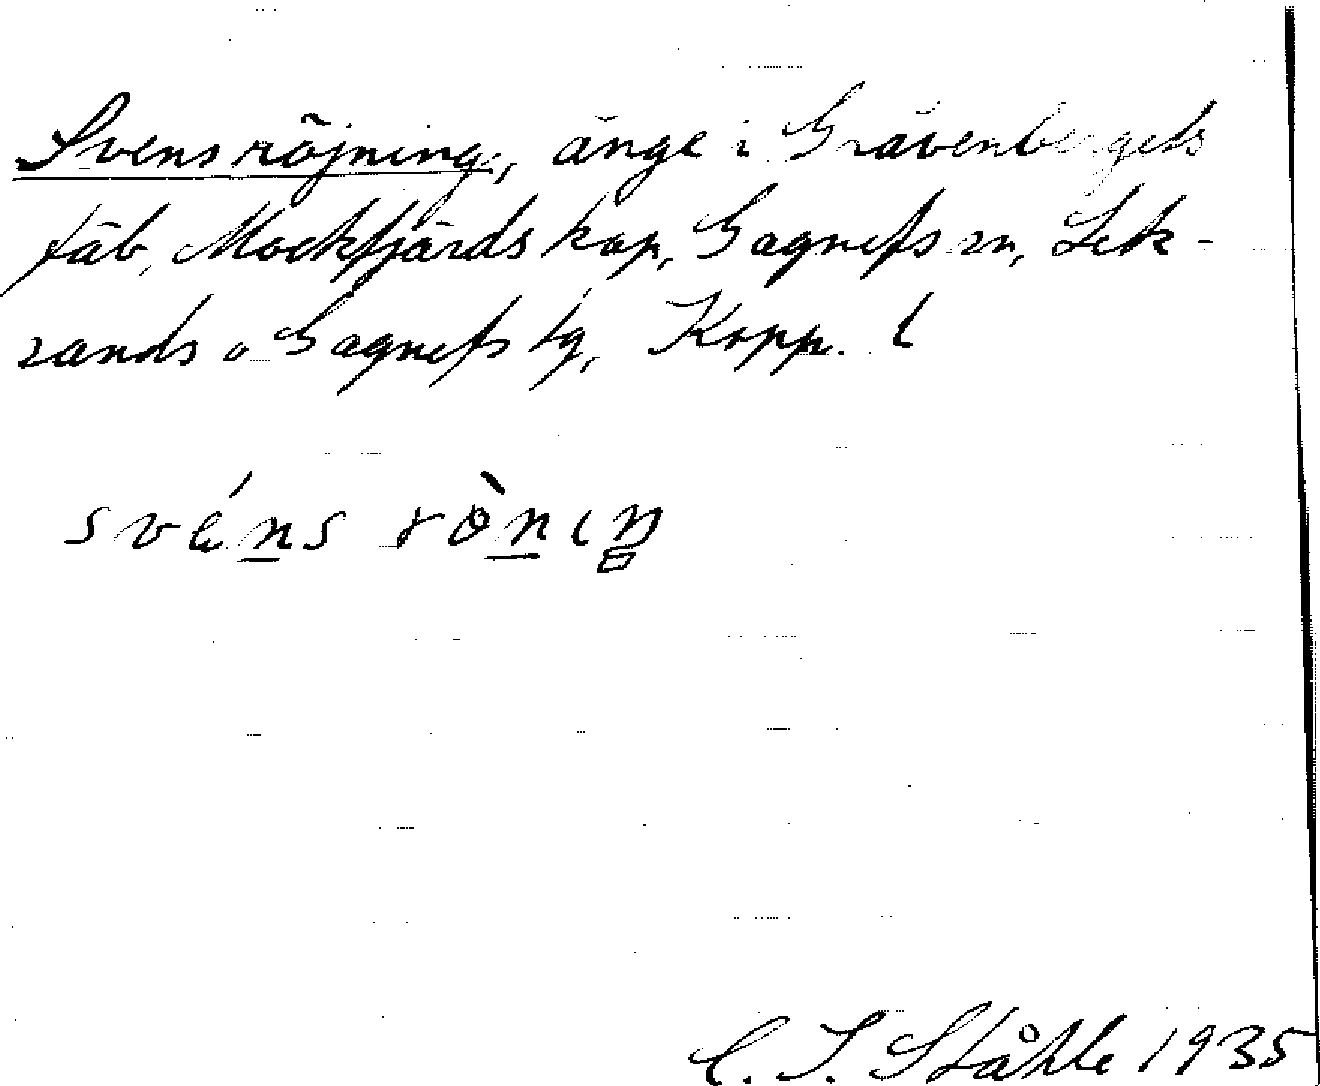 Svensröjning, änge i Grävenbergets
fäb, Mockfjärds kap, Gagnefs sn, Lek-
sands o Gagnefs tg, Kopp. l
svéns rö̀niŋ
C. I. Ståhle 1935